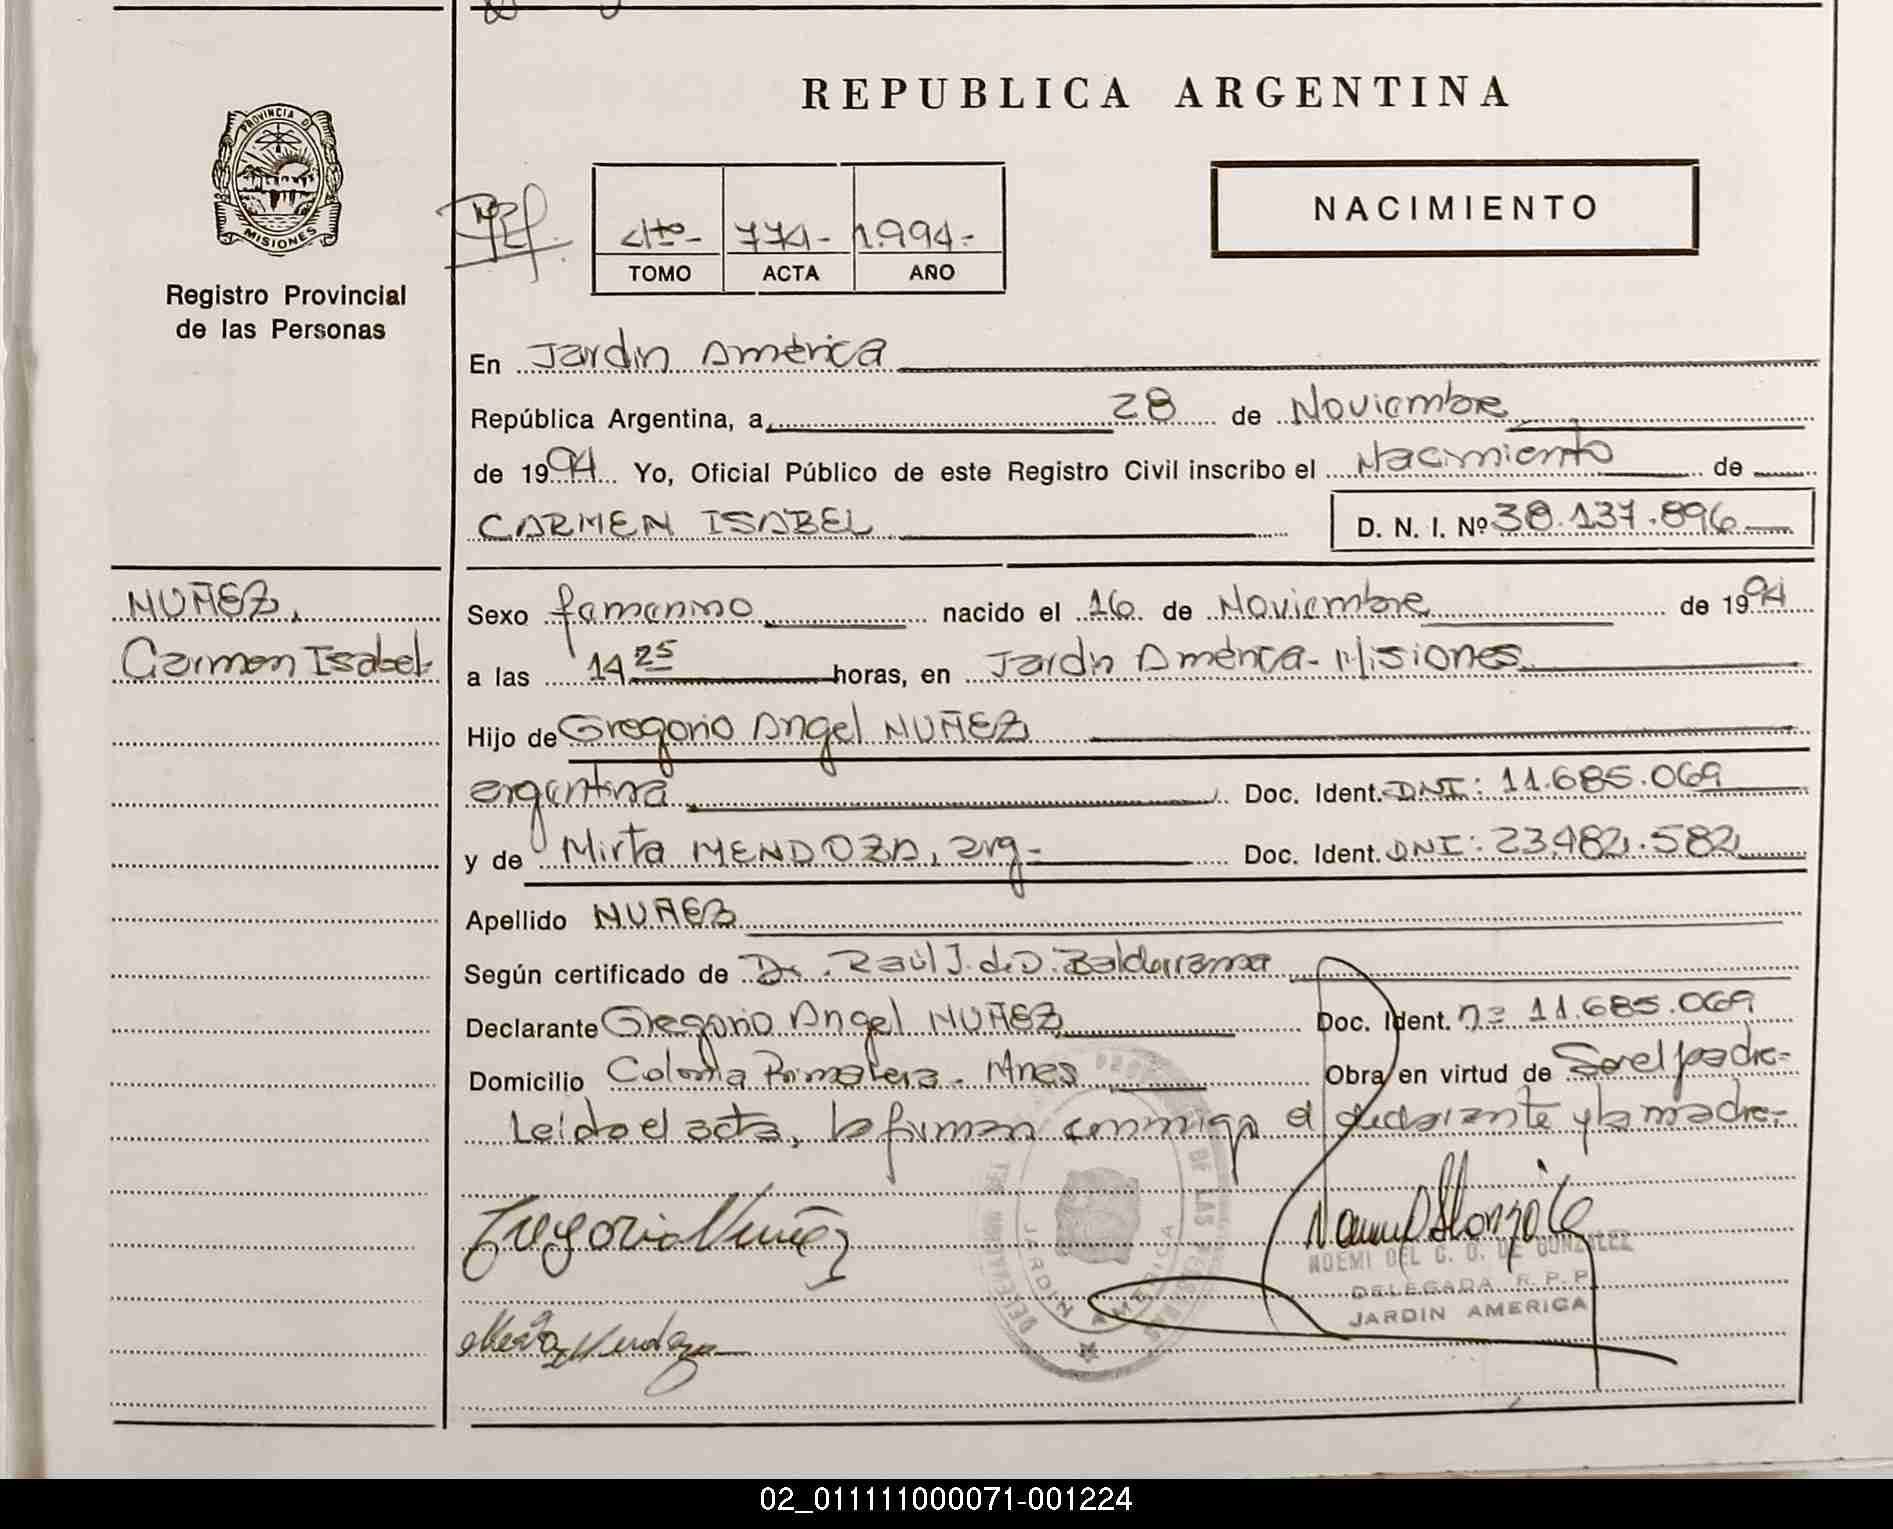 REPUBLICA ARGENTINA
PROVINCIA D
MISIONES
Registro Provincial
de las Personas
4to- 774- 1.994-
TOMO ACTA AÑO
NACIMIENTO
En Jardin América
República Argentina, a 28 de Noviembre
de 1994 Yo, Oficial Público de este Registro Civil inscribo el Nacimiento de
CARMEN ISABEL D. N. I. Nº 38.137.896
NUÑEZ,
Carmen Isabel-
Sexo femenino nacido el 16 de Noviembre de 1994
a las 14 25 horas, en Jardin América - Misiones
Hijo de Gregorio Angel NUÑEZ
argentina Doc. Ident. DNI: 11.685.069
y de Mirta MENDOZA, arg- Doc. Ident. DNI: 23.482.582
Apellido NUÑEZ
Según certificado de Dr. Raúl J. de D. Balderrama
Declarante Gregorio Angel NUÑEZ Doc. Ident. nº 11.685.069
Domicilio Colonia Primavera - Mnes Obra en virtud de Ser el padre-
Leído el acta, la firman conmigo el declarante y la madre-
Gregorio Nuñez
NOEMI DEL C. D. DE GONZALEZ
DELEGADA R. P. P.
JARDIN AMERICA
Mirta Mendoza
DE LAS
JARDIN AMERICA
02_011111000071-001224